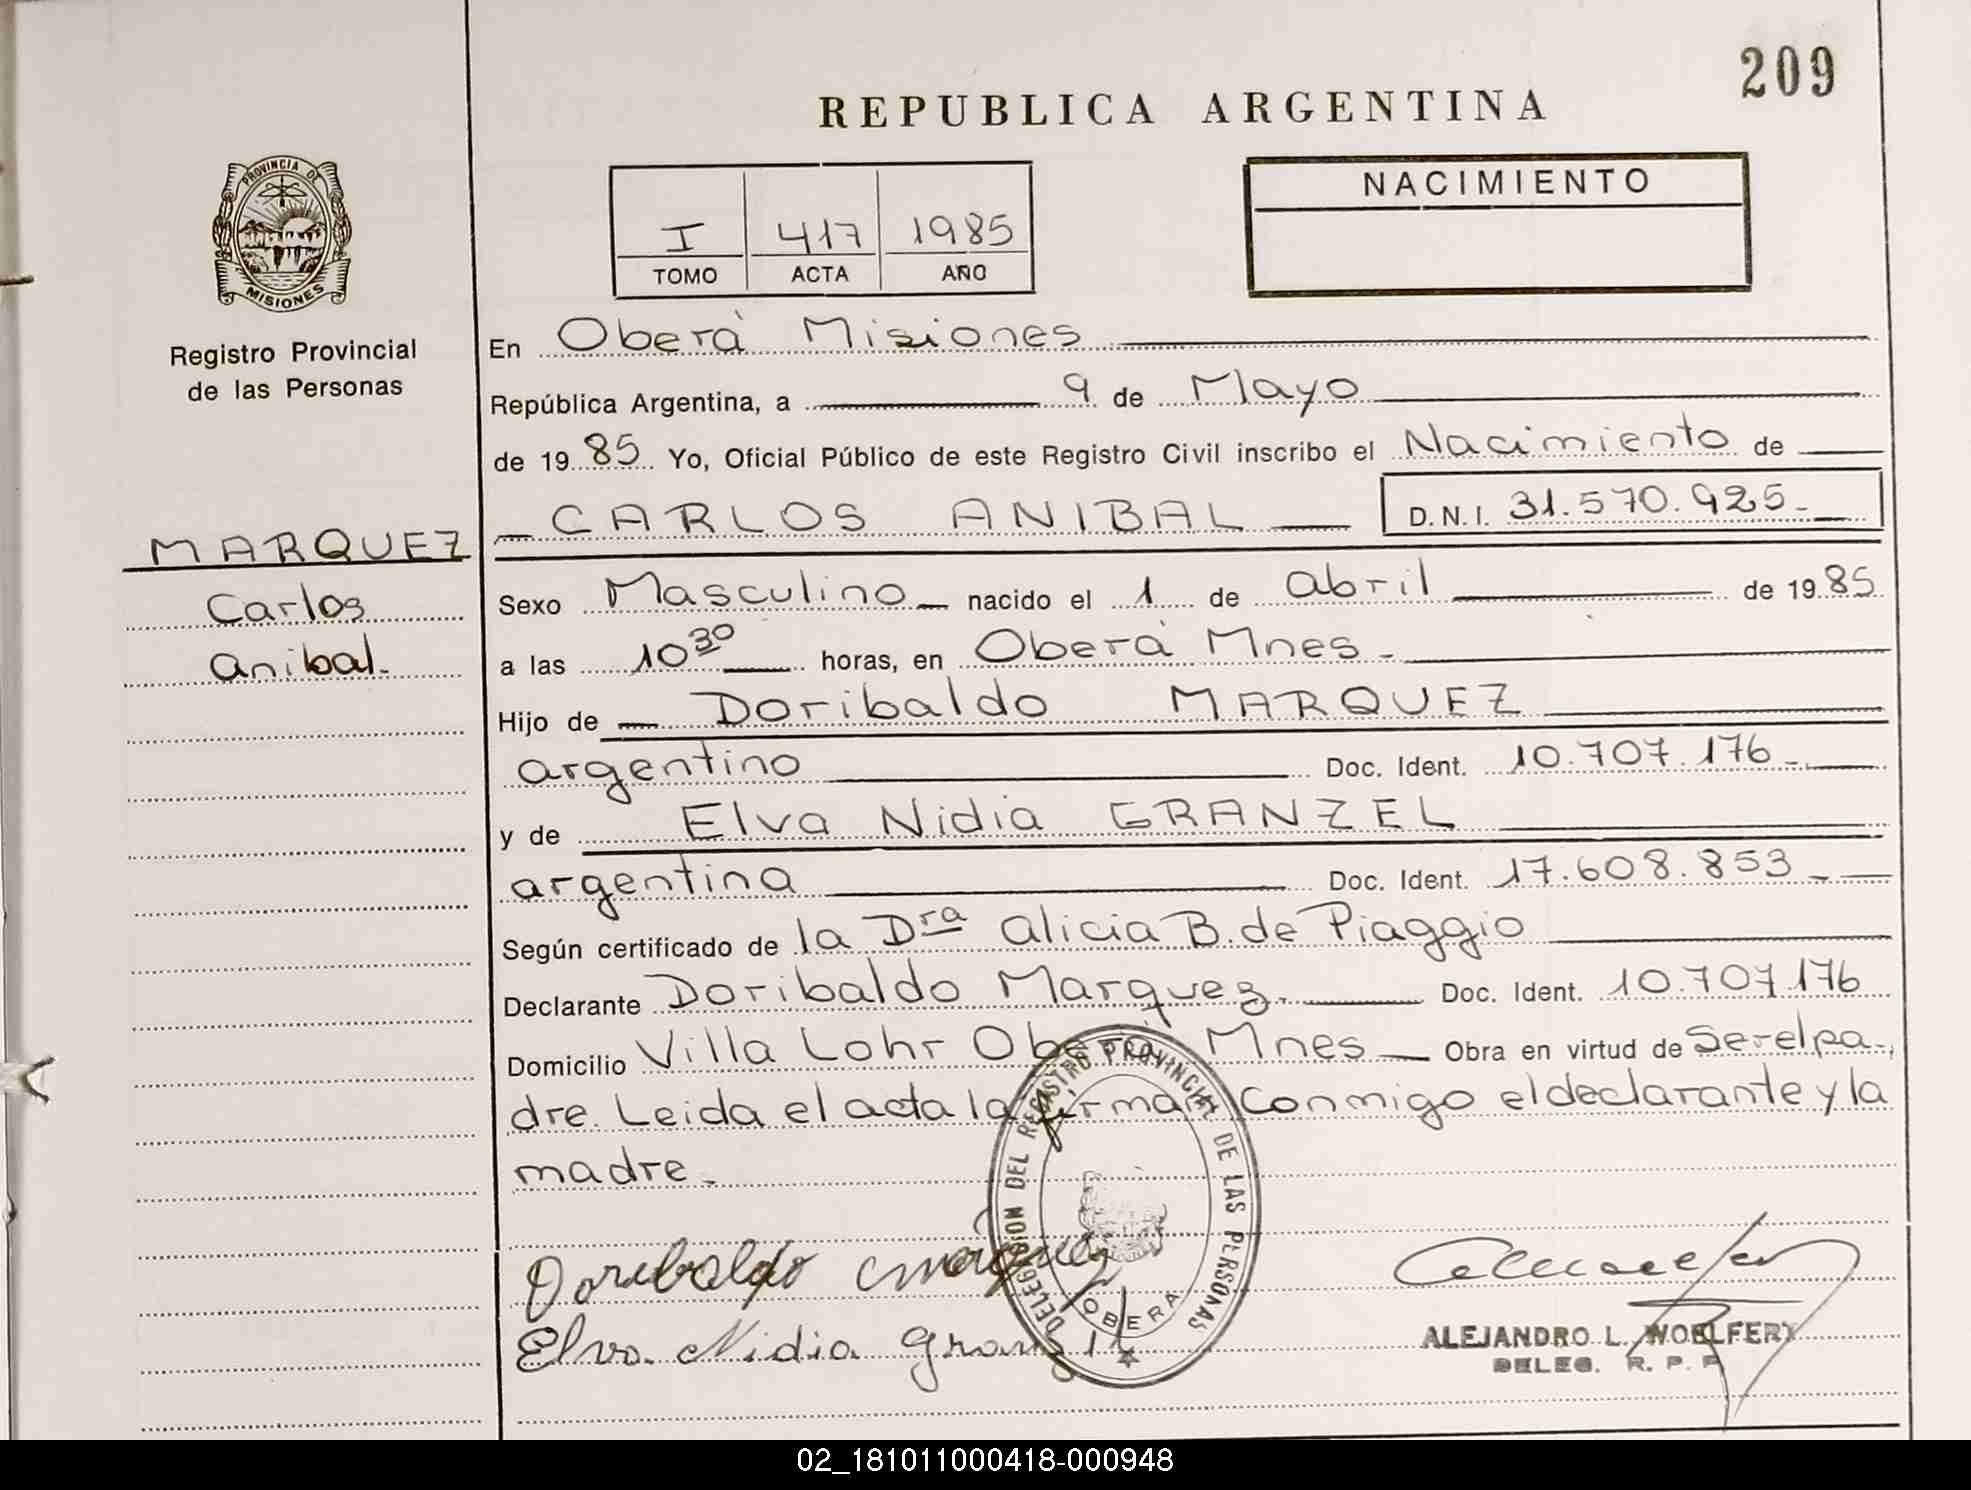 209
REPUBLICA ARGENTINA
PROVINCIA DE
MISIONES
Registro Provincial
de las Personas
I 417 1985
TOMO ACTA AÑO
NACIMIENTO
En Oberá Misiones
República Argentina, a 9 de Mayo
de 1985 Yo, Oficial Público de este Registro Civil inscribo el Nacimiento de
CARLOS ANIBAL D.N.I. 31.570.925-
MARQUEZ
Carlos
Anibal.
Sexo Masculino nacido el 1 de Abril de 1985
a las 10 30 horas, en Oberá Mnes.
Hijo de Doribaldo MARQUEZ
argentino Doc. Ident. 10.707.176
y de Elva Nidia GRANZEL
argentina Doc. Ident. 17.608.853
Según certificado de la Dra Alicia B. de Piaggio
Declarante Doribaldo Marquez. Doc. Ident. 10.707.176
Domicilio Villa Lohr Oberá Mnes Obra en virtud de Ser el pa-
dre. Leida el acta la firman conmigo el declarante y la
madre.
DELEGACION DEL REGISTRO PROVINCIAL DE LAS PERSONAS
OBERA
Doribaldo Marquez
Elva Nidia Granzel
ALEJANDRO L. WOELFERT
DELEG. R. P. P.
02_181011000418-000948